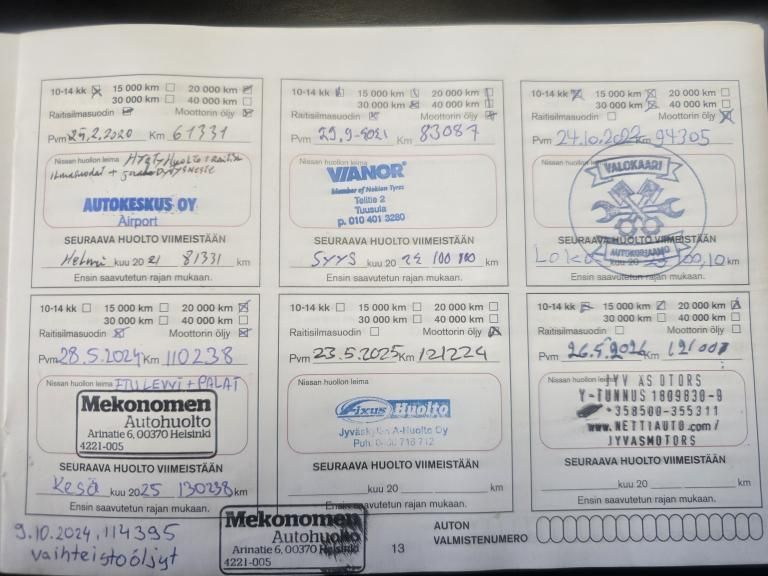 10-14 kk 15 000 km 20 000 km
30 000 km 40 000 km
Raitisilmasuodin Moottorin öljy
Pvm 25.2.2020 Km 61331
Nissan huollon leima
AUTOKESKUS OY
Airport
SEURAAVA HUOLTO VIIMEISTÄÄN
Helmi kuu 20 21 81331 km
Ensin saavutetun rajan mukaan.
10-14 kk 15 000 km 20 000 km
30 000 km 40 000 km
Raitisilmasuodin Moottorin öljy
Pvm 29.9-2021 Km 83087
Nissan huollon leima
VIANOR
Member of Nokian Tyres
Teittie 2
Tuusula
p. 010 401 3280
SEURAAVA HUOLTO VIIMEISTÄÄN
SYYS kuu 20 km
Ensin saavutetun rajan mukaan.
10-14 kk 15 000 km 20 000 km
30 000 km 40 000 km
Raitisilmasuodin Moottorin öljy
Pvm 24.10.2022 Km 94305
Nissan huollon leima
VALOKAARI
AUTOKORJAAMO
SEURAAVA HUOLTO VIIMEISTÄÄN
Loka kuu 20 km
Ensin saavutetun rajan mukaan.
10-14 kk 15 000 km 20 000 km
30 000 km 40 000 km
Raitisilmasuodin Moottorin öljy
Pvm 28.5.2024 Km 110238
Nissan huollon leima ETULEVYT + PALAT
Mekonomen
Autohuolto
Arinatie 6, 00370 Helsinki
4221-005
SEURAAVA HUOLTO VIIMEISTÄÄN
Kesä kuu 2025 130238 km
Ensin saavutetun rajan mukaan.
10-14 kk 15 000 km 20 000 km
30 000 km 40 000 km
Raitisilmasuodin Moottorin öljy
Pvm 23.5.2025 Km 121224
Nissan huollon leima
Fixus Huolto
A-Huolto Oy
SEURAAVA HUOLTO VIIMEISTÄÄN
kuu 20 km
Ensin saavutetun rajan mukaan.
10-14 kk 15 000 km 20 000 km
30 000 km 40 000 km
Raitisilmasuodin Moottorin öljy
Pvm 26.5 Km
Nissan huollon leima
Y-TUNNUS 1809830-8
+358500-355311
www.NETTIAUTO.com/
JYVASMOTORS
SEURAAVA HUOLTO VIIMEISTÄÄN
kuu 20 km
Ensin saavutetun rajan mukaan.
9.10.2024, 114395
vaihteistoöljyt
Mekonomen
Autohuolto
Arinatie 6, 00370 Helsinki
4221-005
13
AUTON
VALMISTENUMERO